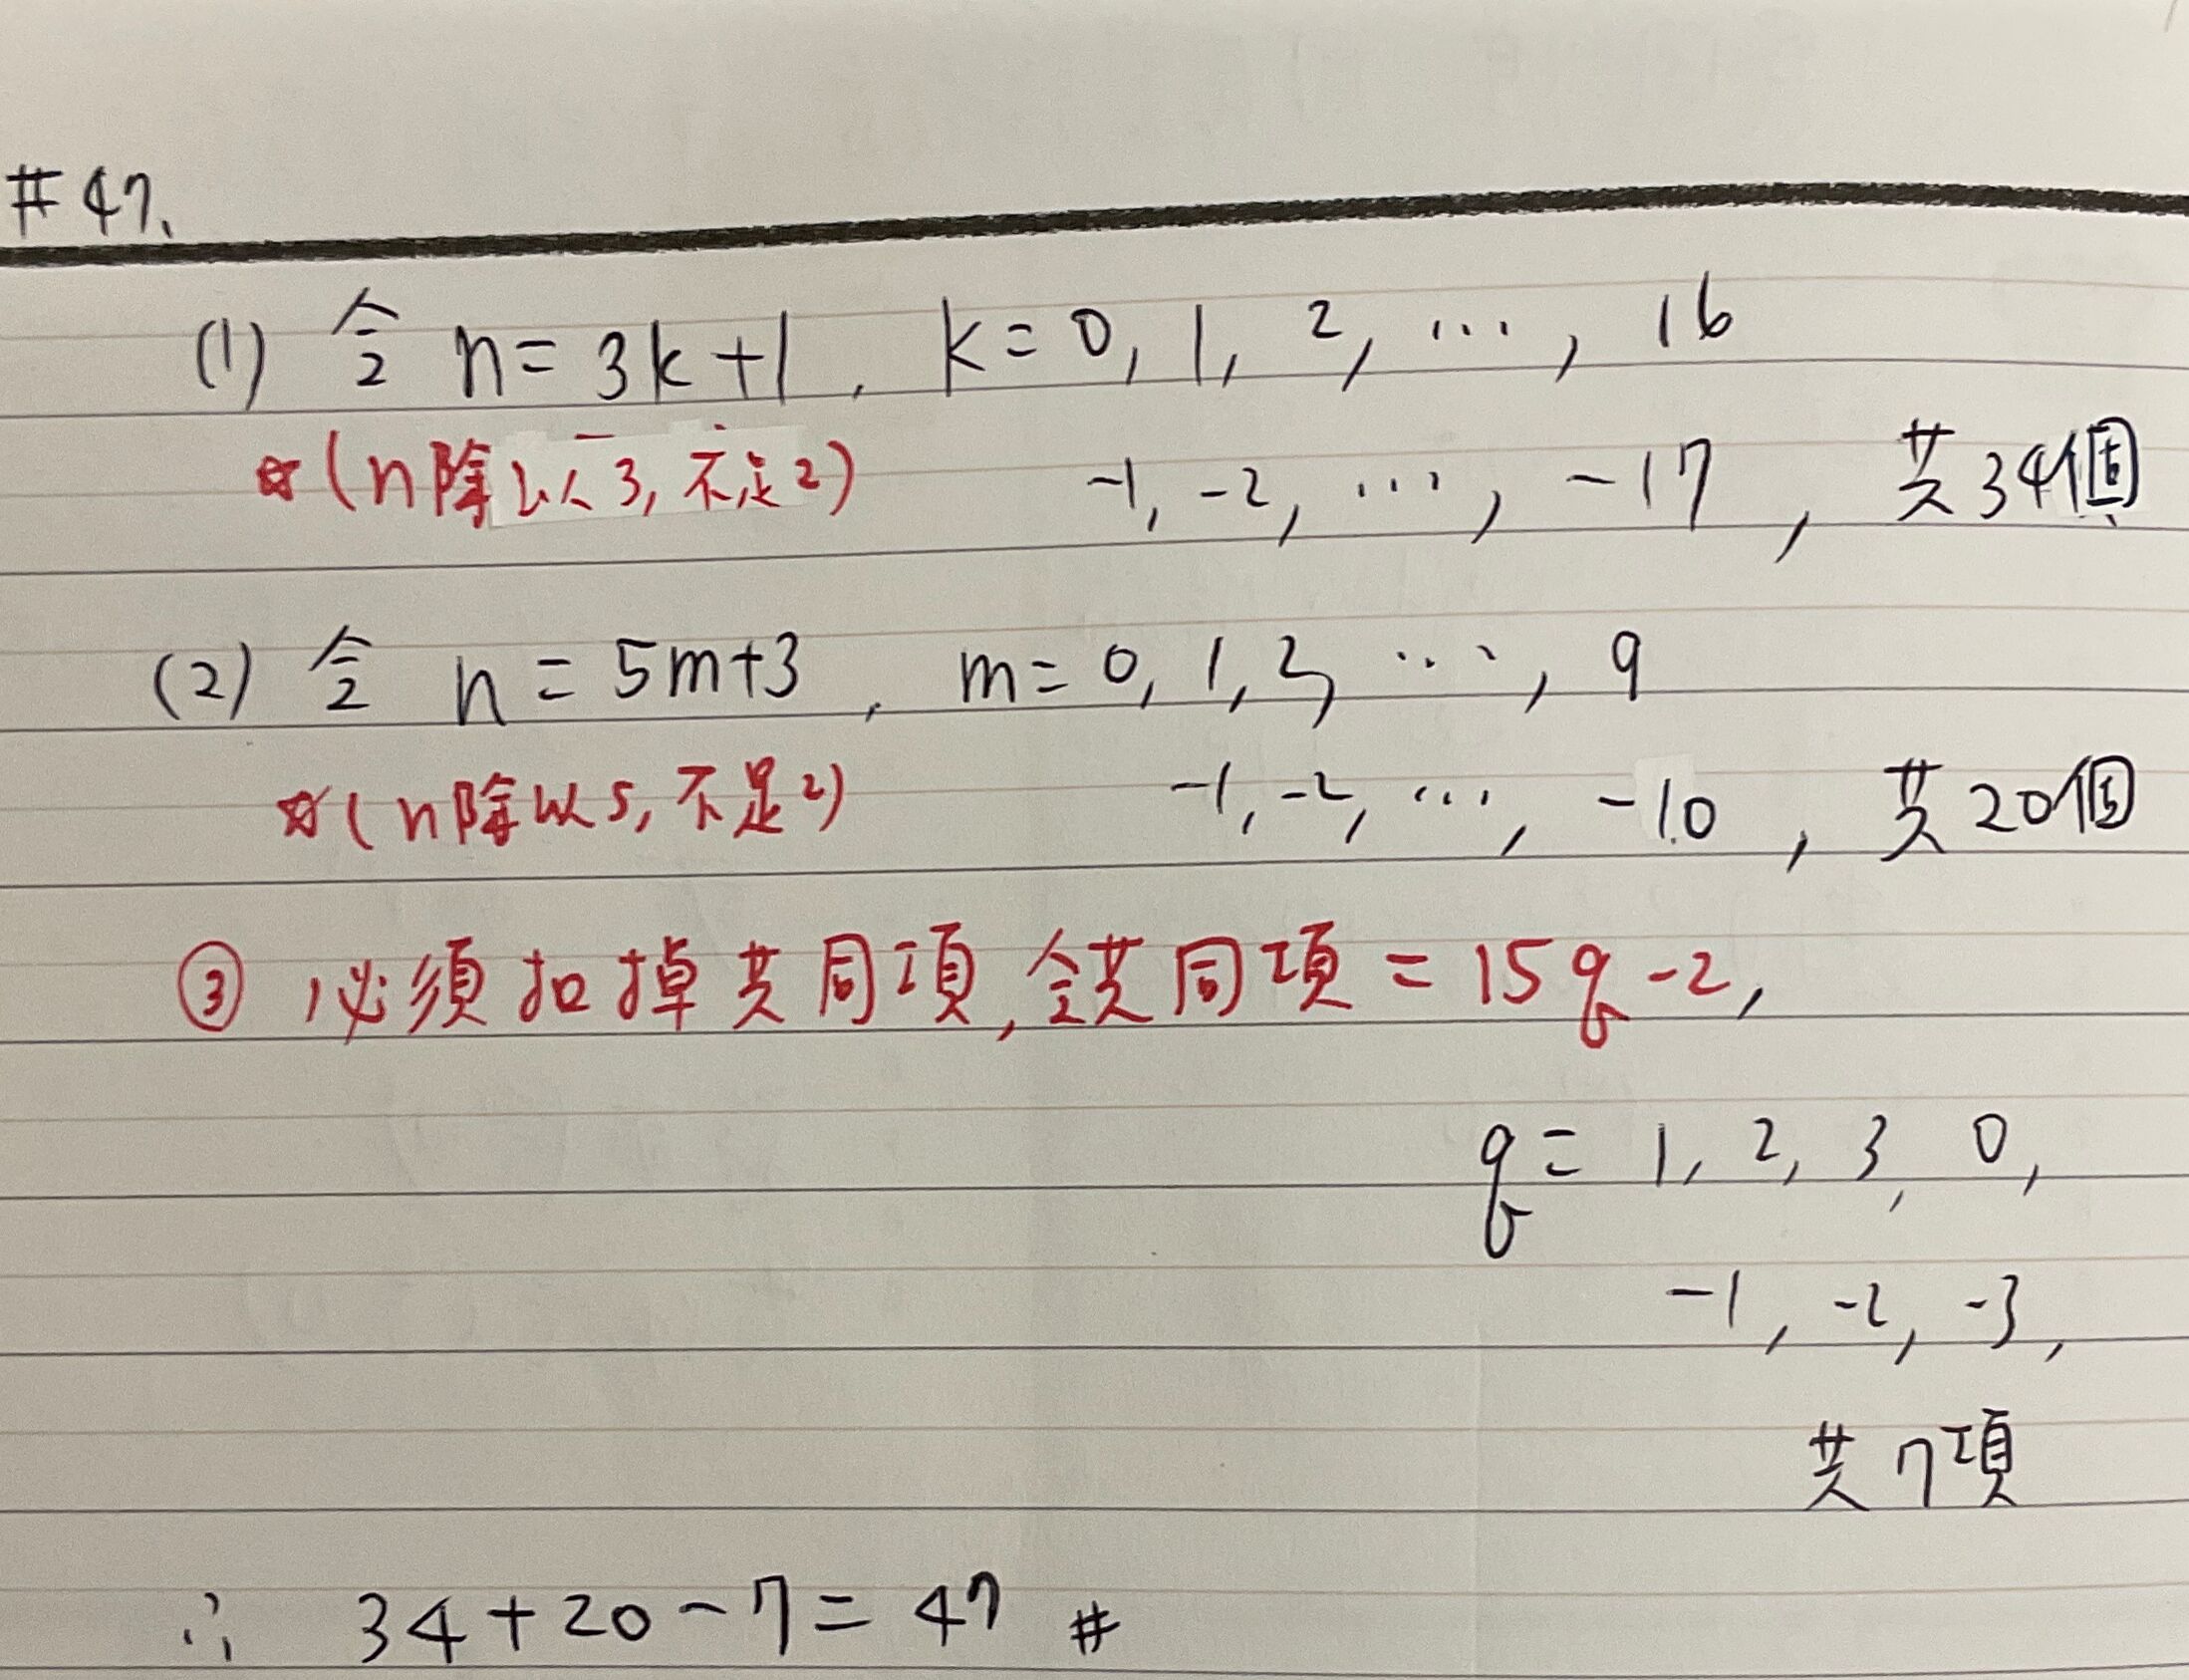 #47.
(1) 令 n = 3k+1, k = 0, 1, 2, …, 16
☆(n除以3, 不足2) -1, -2, …, -17, 共34個
(2) 令 n = 5m+3, m = 0, 1, 2, …, 9
☆(n除以5, 不足2) -1, -2, …, -10, 共20個
③ 必須扣掉共同項, 令共同項 = 15q-2,
q = 1, 2, 3, 0,
-1, -2, -3,
共7項
∴ 34+20-7 = 47 #